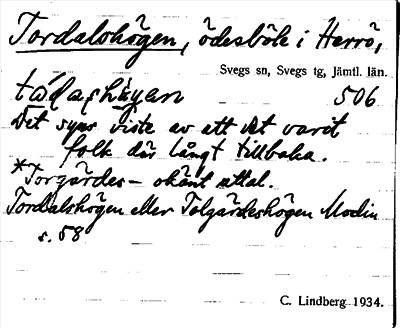 Tordalshögen, ödesböle i Herrö,
Svegs sn, Svegs tg, Jämtl. län.
506
Det syns viste av att det varit
folk där långt tillbaka.
*Torgärdes- okänt uttal.
Tordalshögen eller Tolgärdeshögen Modin
s. 58
C. Lindberg 1934.